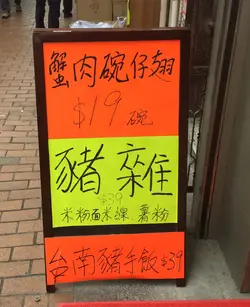 蟹肉碗仔翅
$19碗
豬雜
$39
米粉面米線薯粉
台南豬手飯$39